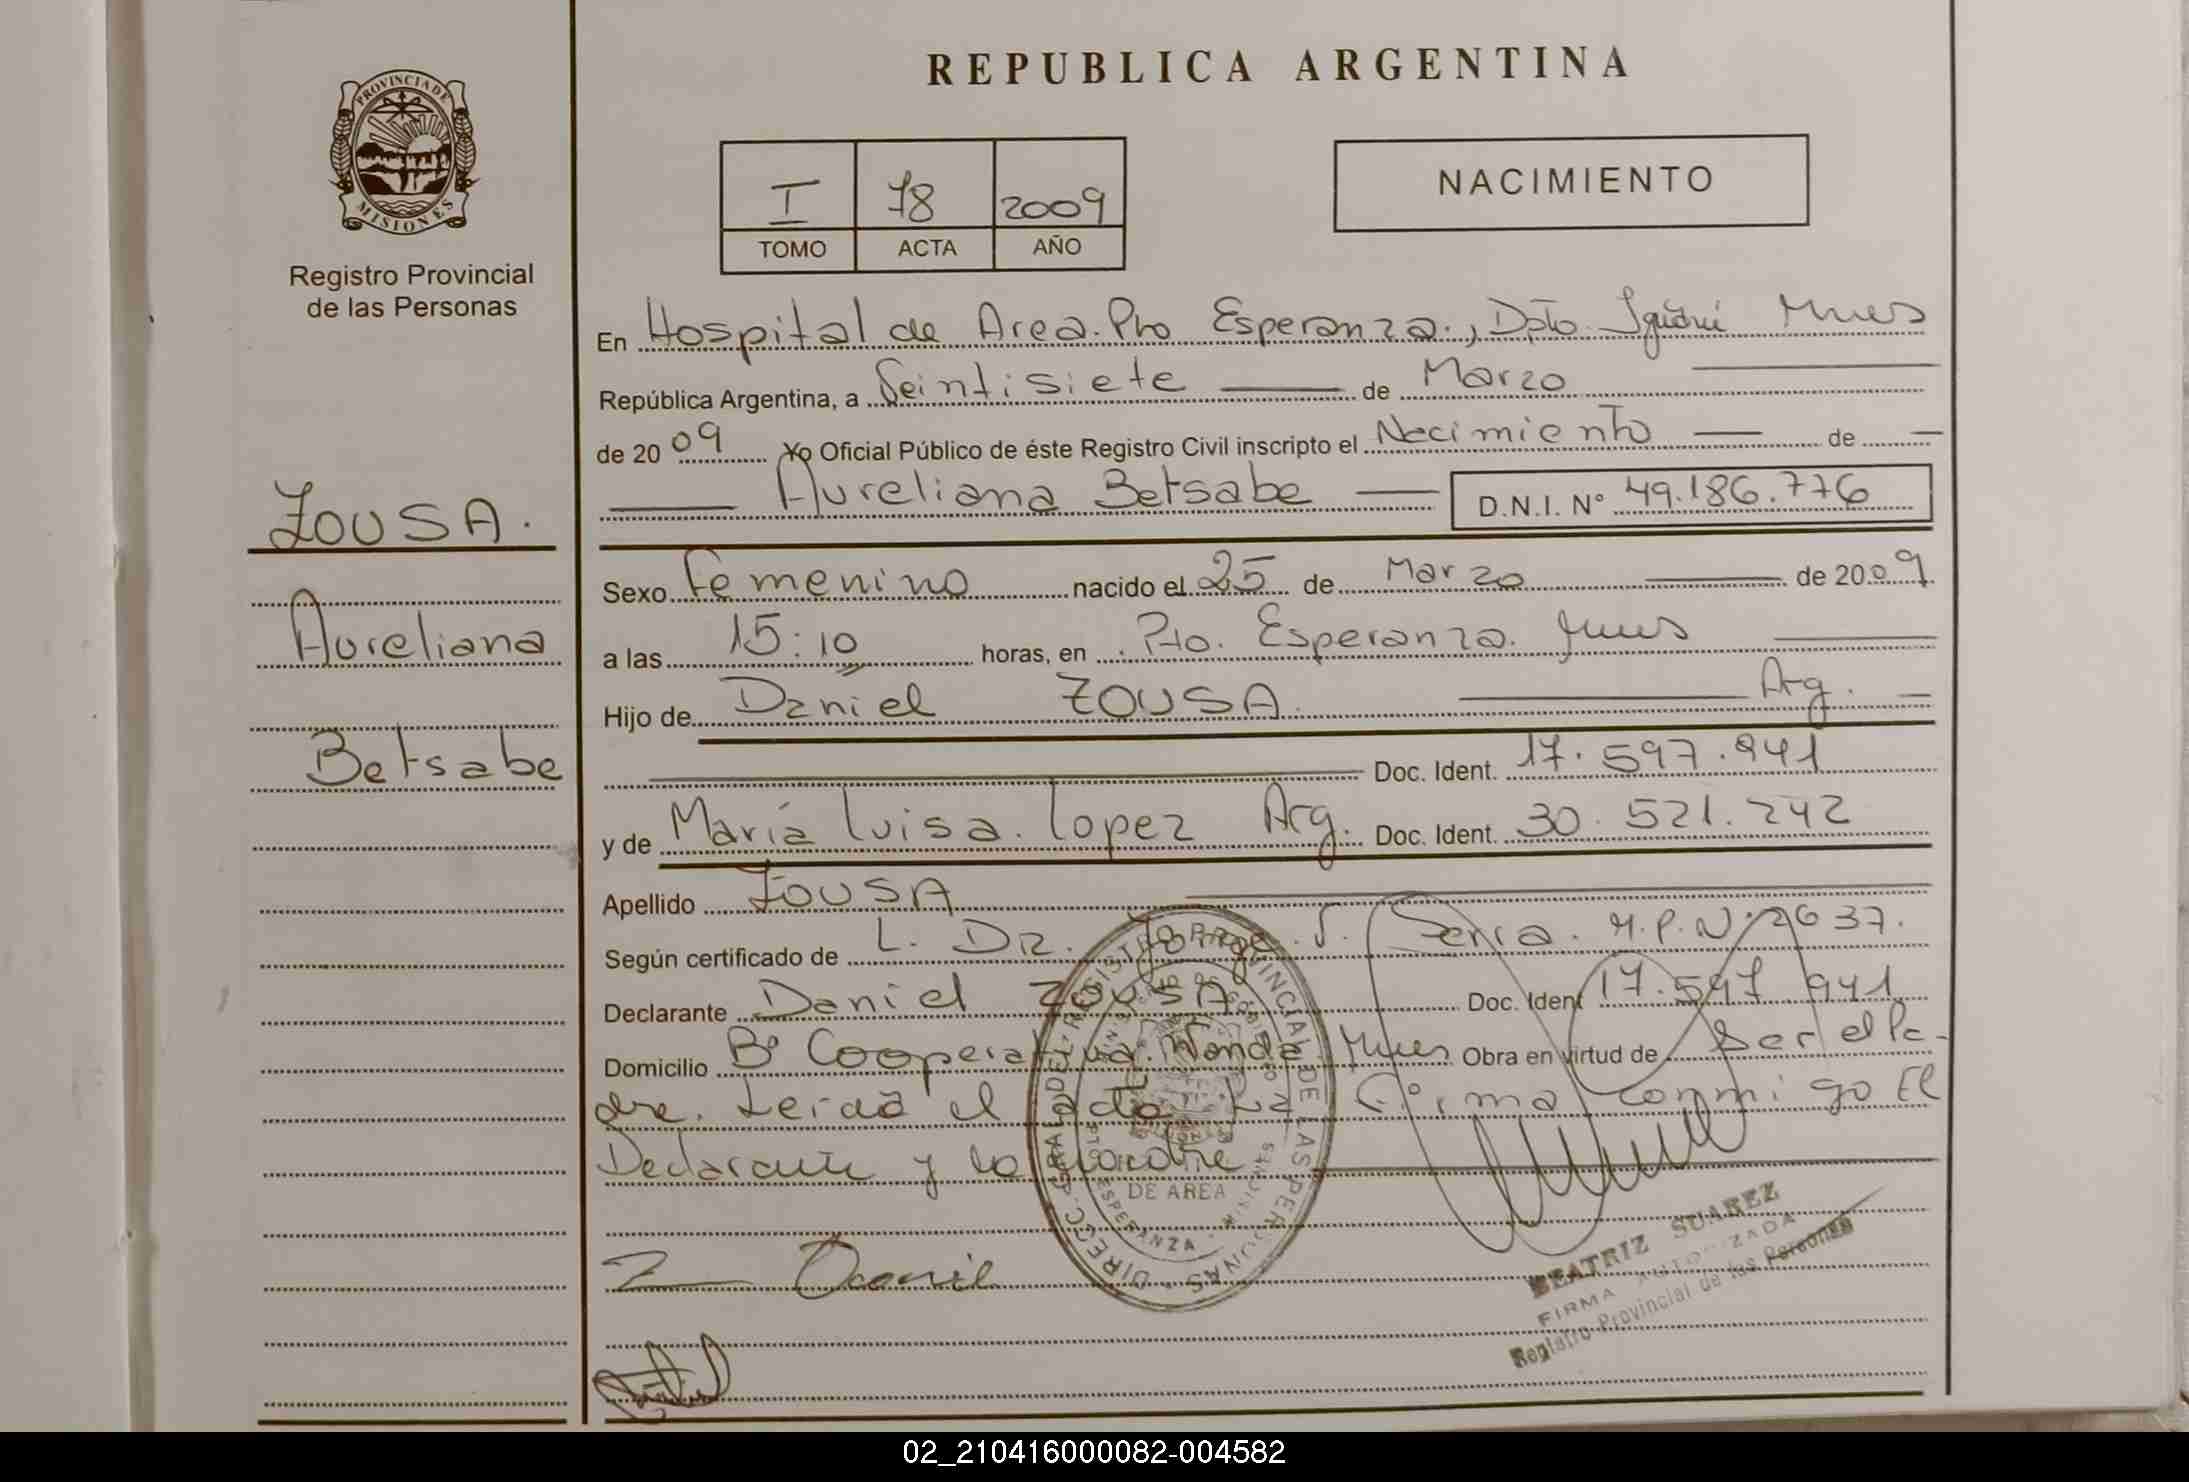 REPUBLICA ARGENTINA
PROVINCIA DE MISIONES
Registro Provincial
de las Personas
I 78 2009
TOMO ACTA AÑO
NACIMIENTO
ZOUSA.
Aureliana
Betsabe
En Hospital de Area. Pto Esperanza., Dpto. Iguazú Mnes
República Argentina, a Veintisiete de Marzo
de 2009 Yo Oficial Público de éste Registro Civil inscripto el Nacimiento de
Aureliana Betsabe D.N.I. Nº 49.186.776
Sexo Femenino nacido el 25 de Marzo de 2009
a las 15:10 horas, en Pto. Esperanza. Mnes
Hijo de Daniel ZOUSA. Arg.
Doc. Ident. 17.597.941
y de María Luisa. Lopez Arg. Doc. Ident. 30.521.242
Apellido ZOUSA
Según certificado de L. Dr. Jorge. S. Serra. M.P.Nº 2637.
Declarante Daniel ZOUSA Doc. Ident 17.597 941
Domicilio Bº Cooperativa. Wanda. Mnes Obra en virtud de Ser el Pa-
dre. Leida el acta La Firma conmigo El
Declarante y la Madre
Z Daniel
DIRECC. GRAL DEL REGISTRO PROVINCIAL DE LAS PERSONAS
DE AREA
ESPERANZA
BEATRIZ SUAREZ
FIRMA AUTORIZADA
Registro Provincial de las Personas
02_210416000082-004582